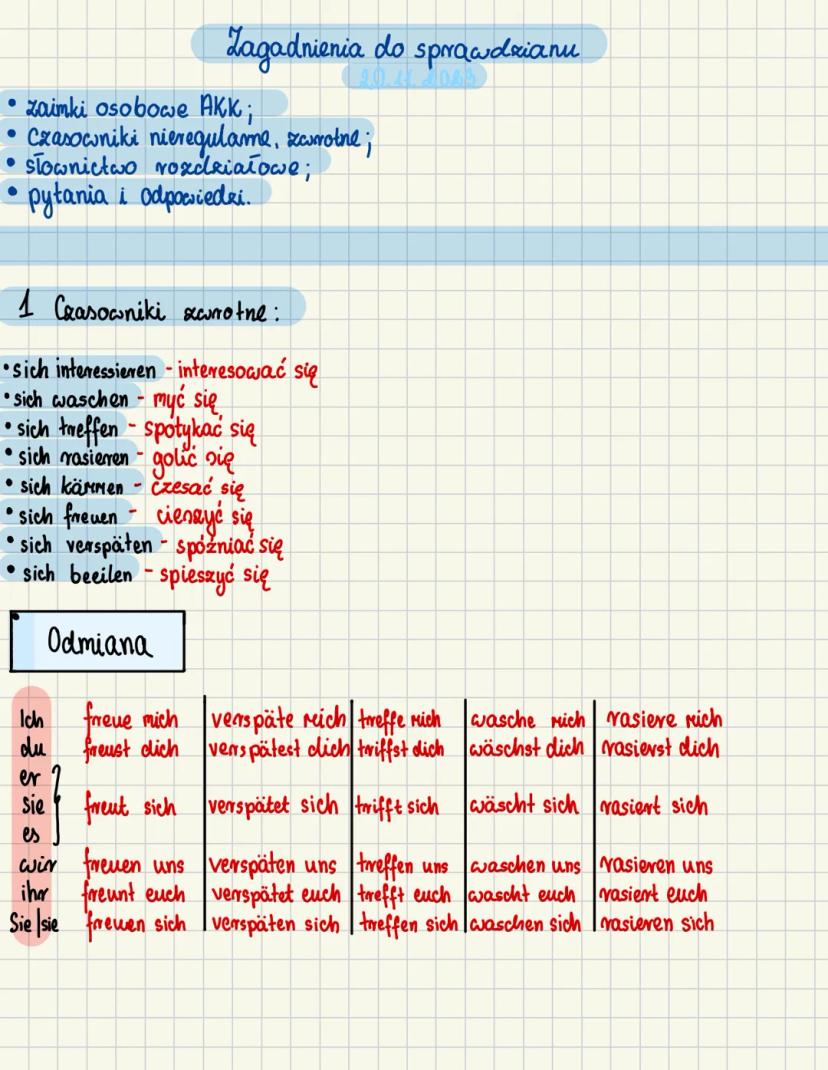 Zagadnienia do sprawdzianu
20.11.2023
• zaimki osobowe AKK;
• czasowniki nieregularne, zwrotne;
• słownictwo rozdziałowe;
• pytania i odpowiedzi.
1 Czasowniki zwrotne:
• sich interessieren - interesować się
• sich waschen - myć się
• sich treffen - spotykać się
• sich rasieren - golić się
• sich kämmen - czesać się
• sich freuen - cieszyć się
• sich verspäten - spóźniać się
• sich beeilen - spieszyć się
Odmiana
Ich freue mich verspäte mich treffe mich wasche mich rasiere mich
du freust dich verspätest dich triffst dich wäschst dich rasierst dich
er
sie freut sich verspätet sich trifft sich wäscht sich rasiert sich
es
wir freuen uns verspäten uns treffen uns waschen uns rasieren uns
ihr freunt euch verspätet euch trefft euch wascht euch rasiert euch
Sie|sie freuen sich verspäten sich treffen sich waschen sich rasieren sich